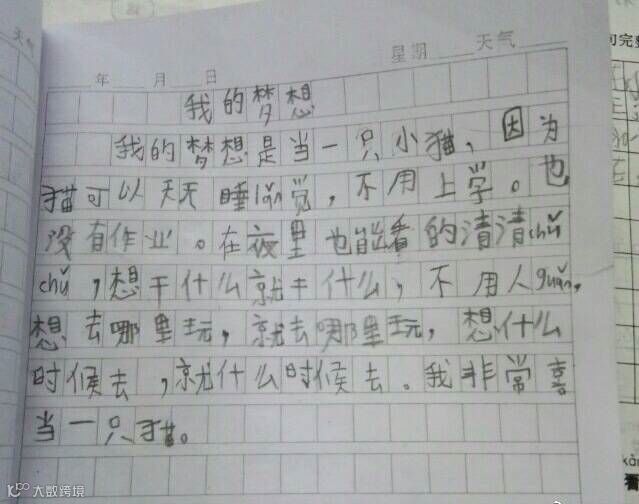 星期 天气
年 月 日
我的梦想
我的梦想是当一只小猫、因为
猫可以天天睡lǎn觉，不用上学。也
没有作业。在夜里也能看的清清chǔ
chǔ，想干什么就干什么，不用人guǎn，
想去哪里玩，就去哪里玩，想什么
时候去，就什么时候去。我非常喜
当一只猫。
大数跨境
句完整
看